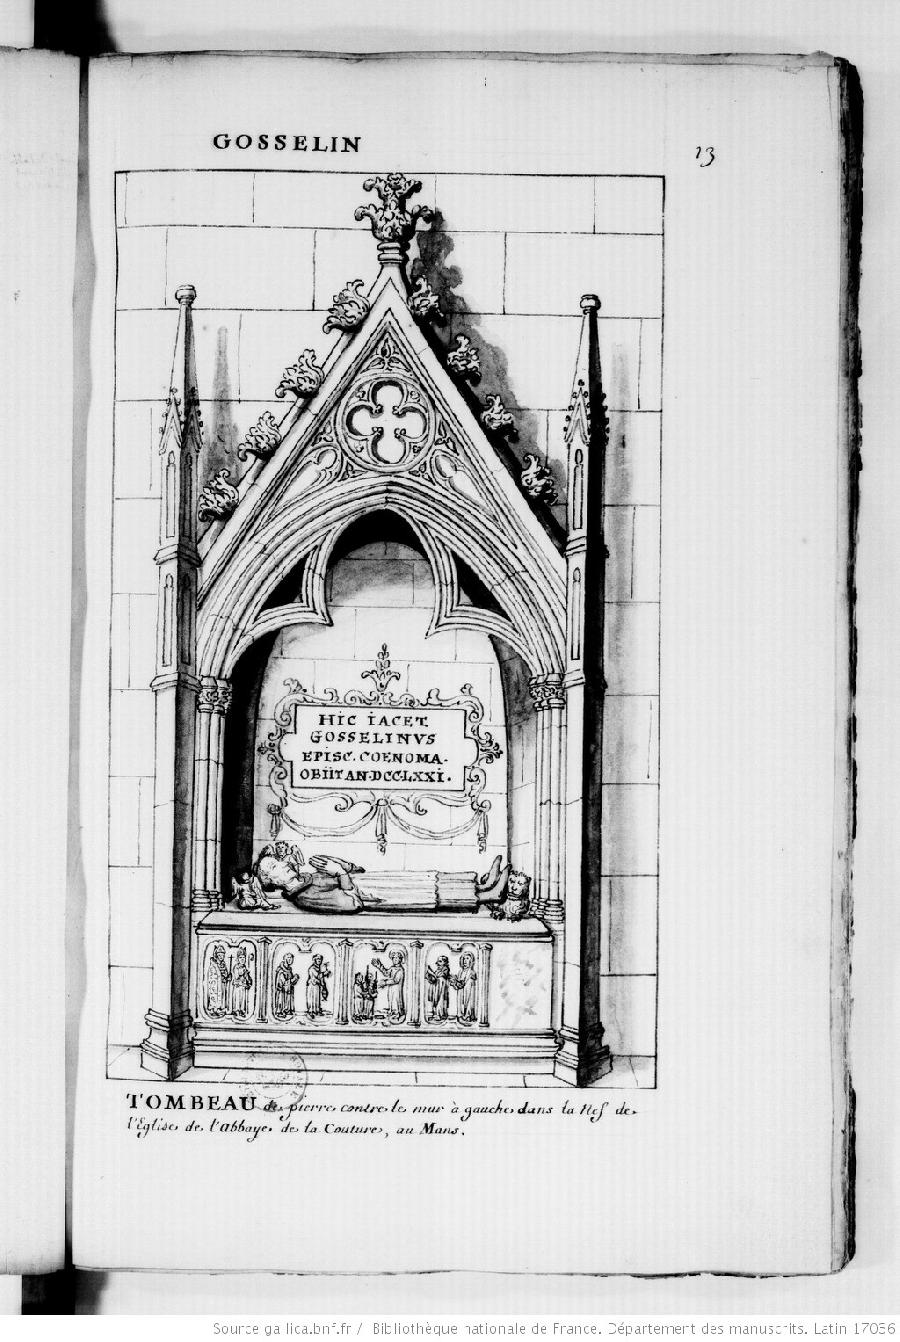 GOSSELIN
23
HIC IACET
GOSSELINVS
EPISC. COENOMA.
OBIIT AN·DCCLXXI.
TOMBEAU de pierre contre le mur à gauche dans la Nef de
l'Eglise de l'abbaye de la Couture, au Mans.
Source gallica.bnf.fr / Bibliothèque nationale de France. Département des manuscrits. Latin 17036